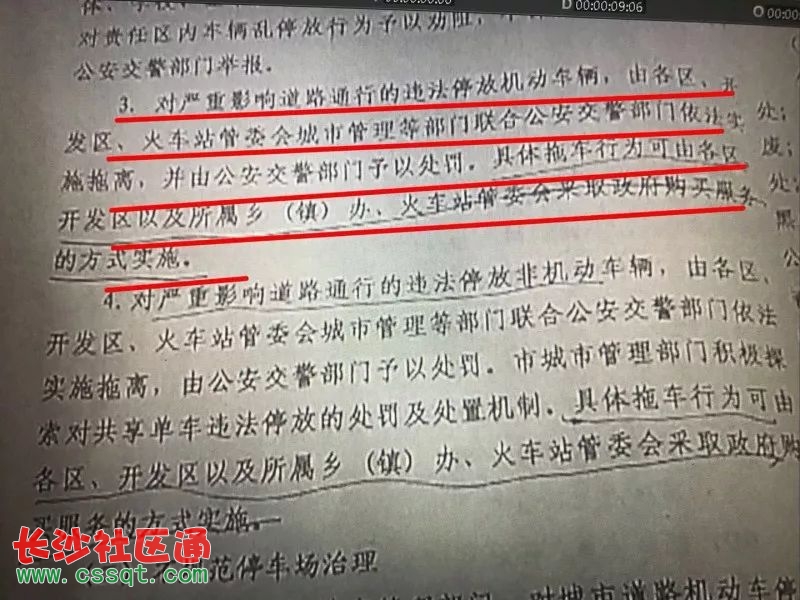 D 00:00:09:06
O 00:00
对责任区内车辆乱停放行为予以劝阻,
公安交警部门举报。
3. 对严重影响道路通行的违法停放机动车辆,由各区、开
发区、火车站管委会城市管理等部门联合公安交警部门依法实
施拖离,并由公安交警部门予以处罚。具体拖车行为可由各区、
开发区以及所属乡(镇)办、火车站管委会采取政府购买服务
的方式实施。
4. 对严重影响道路通行的违法停放非机动车辆,由各区、
开发区、火车站管委会城市管理等部门联合公安交警部门依法
实施拖离,由公安交警部门予以处罚。市城市管理部门积极探
索对共享单车违法停放的处罚及处置机制。具体拖车行为可由
各区、开发区以及所属乡(镇)办、火车站管委会采取政府购
买服务的方式实施。
范停车场治理
对城市道路机动车停
处;
废;
处;
黑
公
长沙社区通
www.cssqt.com